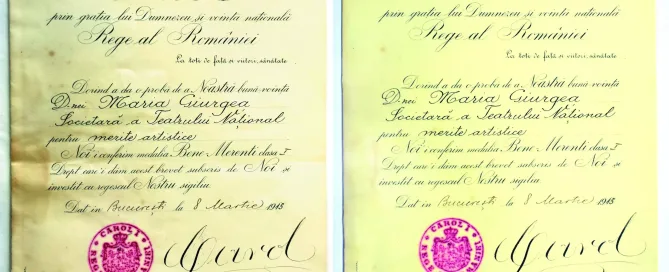 prin grația lui Dumnezeu și voința națională
Rege al României
La toți de față și viitori, sănătate
Voind a da o probă de a Noastră bună voință
D-nei Maria Giurgea
Societară a Teatrului Național
pentru merite artistice
Noi i conferim medalia Bene-Merenti clasa I
Drept care i dăm acest brevet subscris de Noi și
investit cu regescul Nostru sigiliu.
Dat în București la 8 Martie 1913
CAROL I
Carol
prin grația lui Dumnezeu și voința națională
Rege al României
La toți de față și viitori, sănătate
Voind a da o probă de a Noastră bună voință
D-nei Maria Giurgea
Societară a Teatrului Național
pentru merite artistice
Noi i conferim medalia Bene-Merenti clasa I
Drept care i dăm acest brevet subscris de Noi și
investit cu regescul Nostru sigiliu.
Dat în București la 8 Martie 1913
CAROL I
Carol